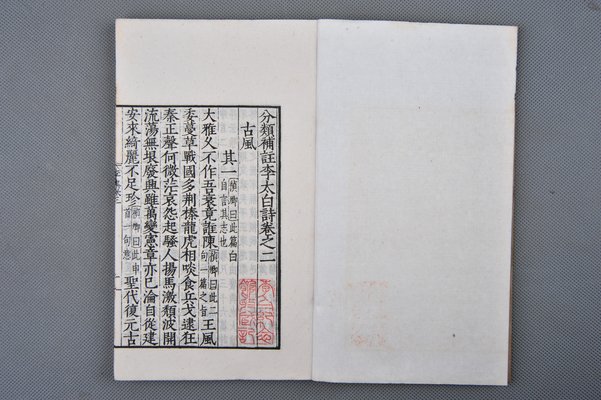 分類補註李太白詩卷之二
古風
其一禎卿曰此篇白自言其志也
大雅久不作吾衰竟誰陳禎卿曰此二句一篇之旨王風
委蔓草戰國多荆榛龍虎相啖食兵戈逮狂
秦正聲何微茫哀怨起騷人揚馬激頹波開
流蕩無垠廢興雖萬變憲章亦已淪自從建
安來綺麗不足珍禎卿曰此申首一句意聖代復元古